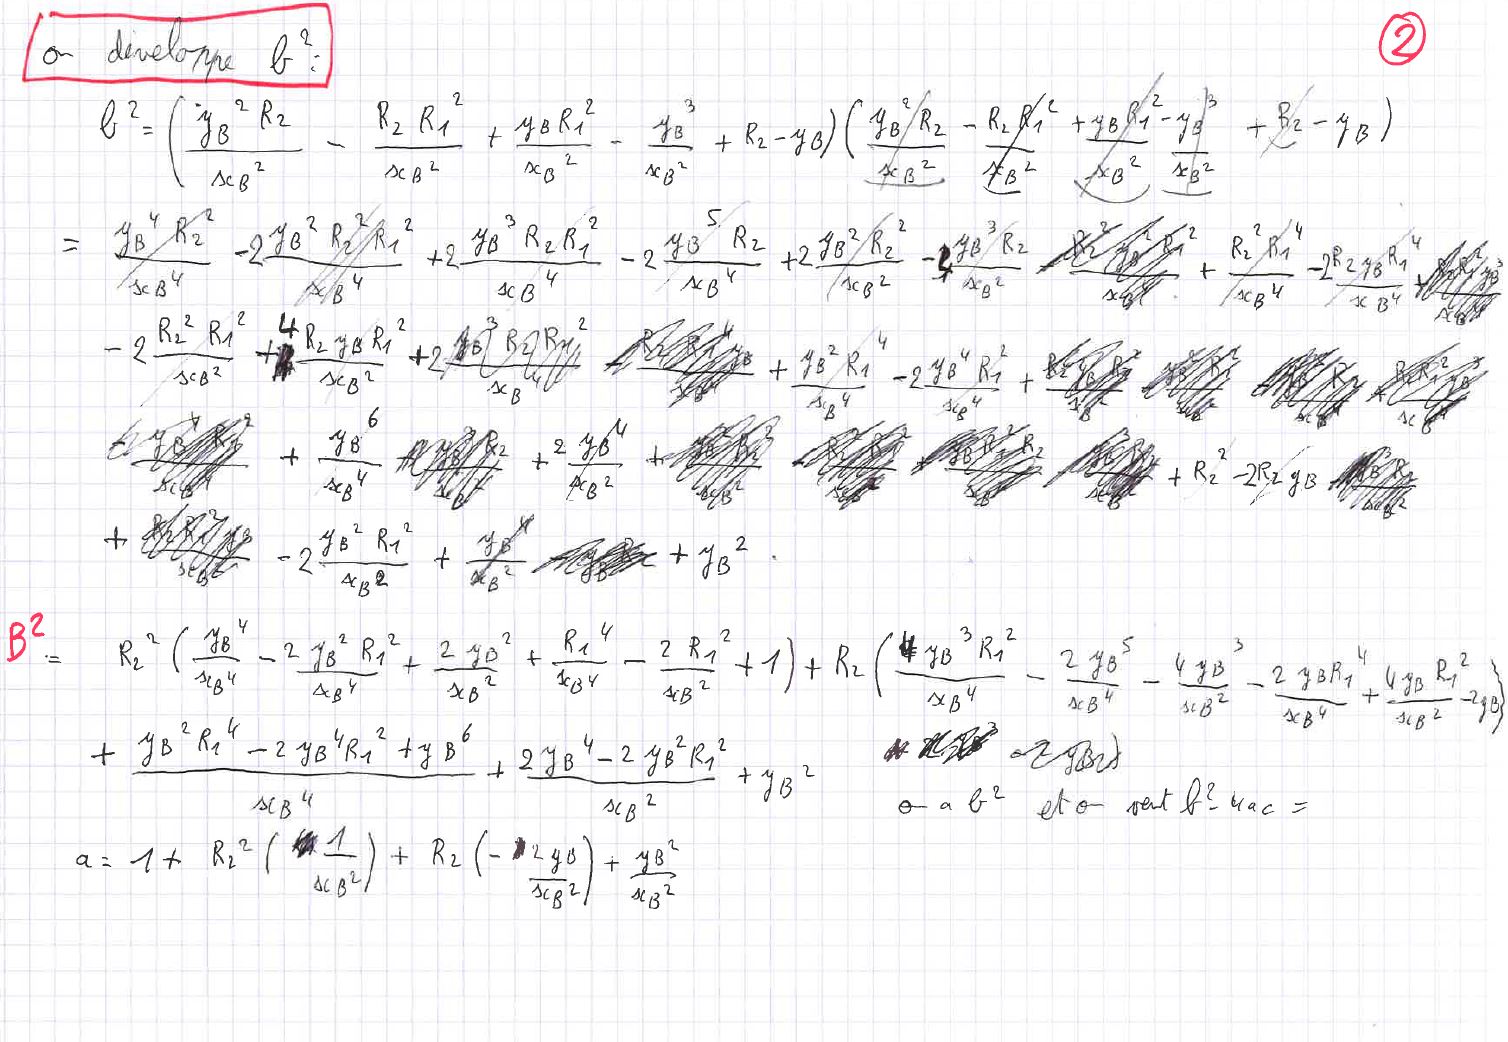 on développe b² :
2
b² = ( y_B² R₂ / x_B² - R₂ R₁² / x_B² + y_B R₁² / x_B² - y_B³ / x_B² + R₂ - y_B ) ( y_B² R₂ / x_B² - R₂ R₁² / x_B² + y_B R₁² / x_B² - y_B³ / x_B² + R₂ - y_B )
= y_B⁴ R₂² / x_B⁴ - 2 y_B² R₂² R₁² / x_B⁴ + 2 y_B³ R₂ R₁² / x_B⁴ - 2 y_B⁵ R₂ / x_B⁴ + 2 y_B² R₂² / x_B² - 4 y_B³ R₂ / x_B² + R₂² R₁⁴ / x_B⁴ - 2 R₂ y_B R₁⁴ / x_B⁴
- 2 R₂² R₁² / x_B² + 4 R₂ y_B R₁² / x_B² + 2 y_B³ R₂ R₁² / x_B⁴ + y_B² R₁⁴ / x_B⁴ - 2 y_B⁴ R₁² / x_B⁴ +
+ y_B⁶ / x_B⁴ + 2 y_B⁴ / x_B² + R₂² - 2 R₂ y_B
+ - 2 y_B² R₁² / x_B² + y_B⁴ / x_B² + y_B² .
B² = R₂² ( y_B⁴ / x_B⁴ - 2 y_B² R₁² / x_B⁴ + 2 y_B² / x_B² + R₁⁴ / x_B⁴ - 2 R₁² / x_B² + 1 ) + R₂ ( 4 y_B³ R₁² / x_B⁴ - 2 y_B⁵ / x_B⁴ - 4 y_B³ / x_B² - 2 y_B R₁⁴ / x_B⁴ + 4 y_B R₁² / x_B² - 2 y_B )
+ y_B² R₁⁴ - 2 y_B⁴ R₁² + y_B⁶ / x_B⁴ + 2 y_B⁴ - 2 y_B² R₁² / x_B² + y_B²
on a b² et on veut b² - 4ac =
a = 1 + R₂² ( 1 / x_B² ) + R₂ ( - 2 y_B / x_B² ) + y_B² / x_B²